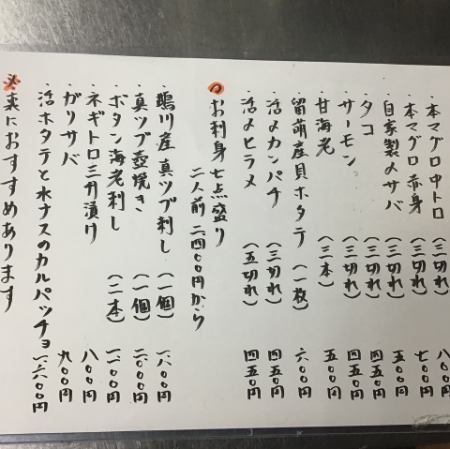 ・本マグロ中トロ（三切れ）八〇〇円
・本マグロ赤身（三切れ）七〇〇円
自家製〆サバ（三切れ）五〇〇円
・タコ（三切れ）四五〇円
・サーモン（三切れ）四五〇円
甘海老（三本）五〇〇円
留萌産貝ホタテ（一枚）六〇〇円
活〆カンパチ（三切れ）四五〇円
・活〆ヒラメ（五切れ）四五〇円
〇お刺身七点盛り
二人前二四〇〇円から
・鴨川産真ツブ刺し（一個）一、八〇〇円
・真ツブ壺焼き（一個）二、〇〇〇円
・ボタン海老刺し（二本）一、二〇〇円
・ネギトロ三升漬け八〇〇円
・ガリサバ九〇〇円
・活ホタテと水ナスのカルパッチョ一、二〇〇円
※裏におすすめあります